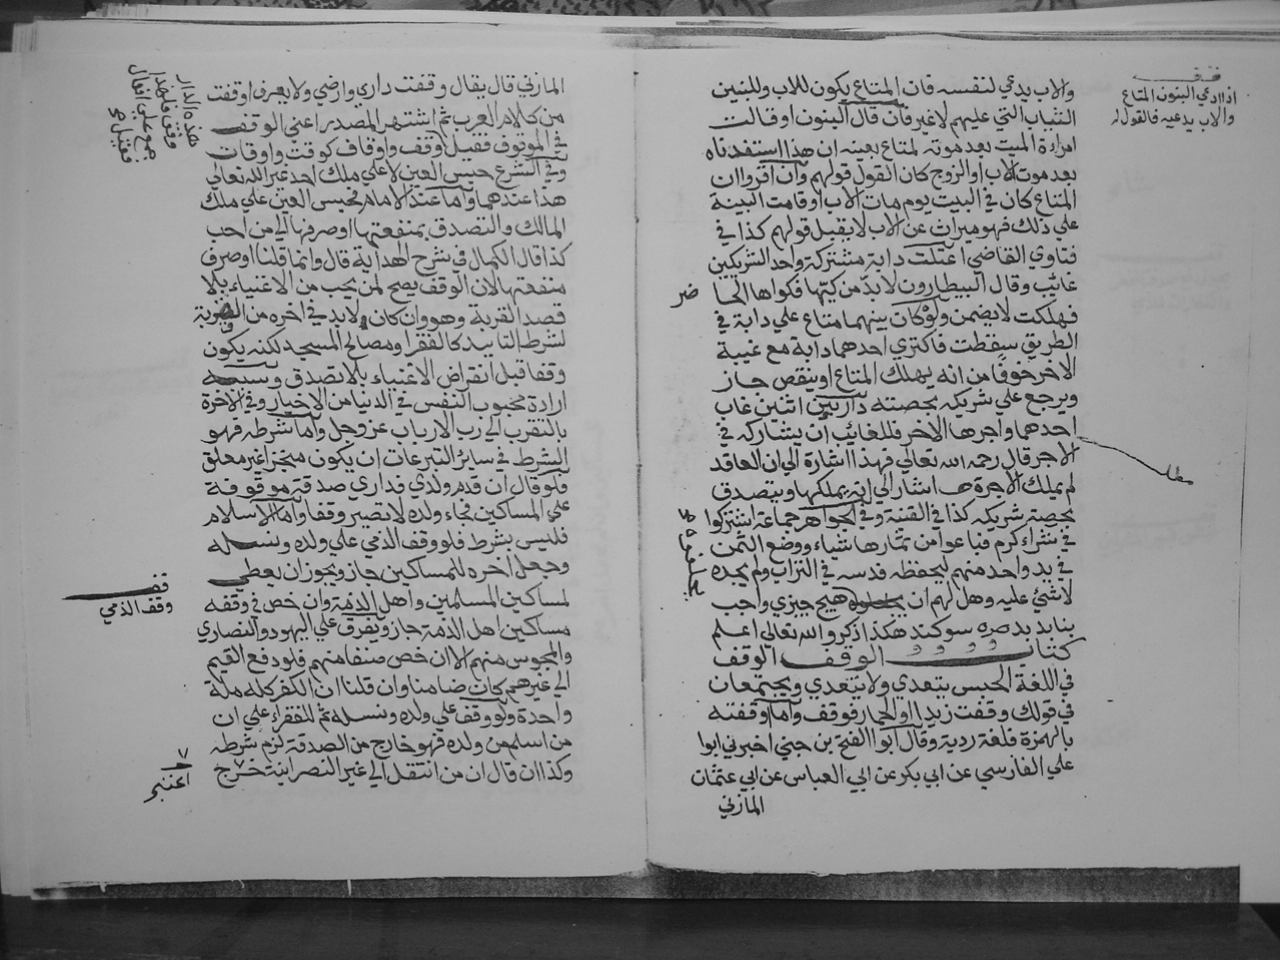 والاب يدعي لنفسه فان المتاع يكون للاب وللبنين
الثياب التي عليهم لا غير فان قال البنون او قالت
امراءة الميت بعد موته لمتاع بعينه ان هذا استفدناه
بعد موت الاب او الزوج كان القول قولهم وان اقروا ان
المتاع كان في البيت يوم مات الاب او قامت البينة
علي ذلك فهو ميراث عن الاب لا يقبل قولهم كذا في
فتاوي القاضي اعتلت دابة مشتركة واحد الشريكين
غائب وقال البيطارون لابد من كيتها فكواها الحا
ضر
فهلكت لا يضمن ولو كان بينهما متاع علي دابة في
الطريق سقطت فاكتري احدهما دابة مع غيبة
الاخر خوفا من انه يهلك المتاع او ينقص جاز
ويرجع علي شريكه بحصته دار بين اثنين غاب
احدهما واجرها الاخر فللغائب ان يشاركه في
الاجر قال رحمه الله تعالي فهذا اشارة الي ان العاقد
لم يملك الاجرة اشار الي انه يملكها ويتصدق
بحصة شريكه كذا في القنية وفي الجواهر جماعة اشتركوا
في شراء كرم فباعوا من ثمارها شياء ووضع الثمن
في يد واحد منهم ليحفظه فدسه في التراب ولم يجده
لا شئ عليه وهل لهم ان هيج جيزي واجب
بنايد بدمره سوكند هكذا ذكر والله تعالي اعلم
كتاب الوقف الوقف
في اللغة الحبس يتعدي ولا يتعدي ويجتمعان
في قولك وقفت زيدا او الحمار فوقف واما اوقفته
بالهمزة فلغة ردية وقال ابوا الفتح بن جني اخبرني ابوا
علي الفارسي عن ابي بكر عن ابي العباس عن ابي عثمان
المازني
قف
اذا ادعي البنون المتاع
والاب يدعيه فالقول له
مطل
المازني قال يقال وقفت داري وارضي ولا يعرف اوقفت
من كلام العرب ثم اشتهر المصدر اعني الوقف
في الموقوف فقيل اوقف واوقاف كوقت واوقات
وفي الشرع حبس العين لا علي ملك احد غير الله تعالي
هذا عندهما واما عند الامام فحبس العين علي ملك
المالك والتصدق بمنفعتها او صرفها الي من احب
كذا قال الكمال في شرح الهداية قال وانما قلنا او صرف
منفعتها لان الوقف يصح لمن يحب من الاغنياء بلا
قصد القربة وهو وان كان ولابد في اخره من القربة
لشرط التابيد كالفقرا ومصالح المسجد لكنه يكون
وقفا قبل انقراض الاغنياء بلا تصدق وسببه
ارادة محبوب النفس في الدنيا من الاخيار وفي الاخرة
بالتقرب الي رب الارباب عز وجل واما شرطه فهو
الشرط في سائر التبرعات ان يكون منجزا غير معلق
فلو قال ان قدم ولدي فداري صدقة موقوفة
علي المساكين فجاء ولده لا تصير وقفا واما الاسلام
فليس بشرط فلو وقف الذمي علي ولده ونسله
وجعل اخره للمساكين جاز ويجوز ان يعطي
لمساكين المسلمين واهل الذمة وان خص في وقفه
مساكين اهل الذمة جاز ويفرق علي اليهود والنصاري
والمجوس منهم الا ان خص صنفا منهم فلو دفع القيم
الي غيرهم كان ضامنا وان قلنا ان الكفر كله ملة
واحدة ولو وقف علي ولده ونسله ثم للفقراء علي ان
من اسلم من ولده فهو خارج من الصدقة لزم شرطه
وكذا ان قال ان من انتقل الي غير النصرانية خرج
هذه الدار
وقف فلهذا
جمع علي افعال
فقيل
قف
وقف الذمي
٧
اعتبر